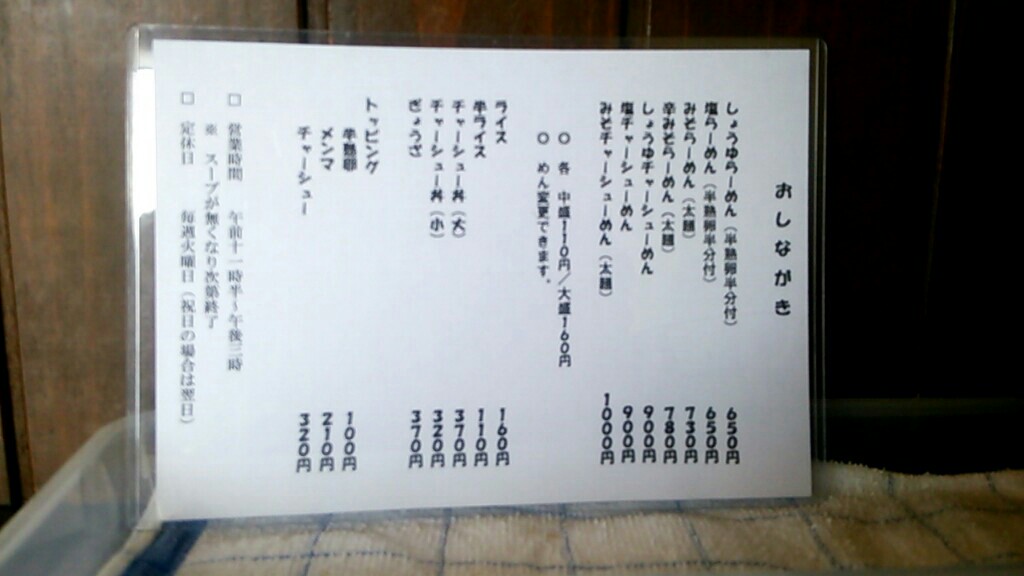 おしながき
しょうゆらーめん（半熟卵半分付） 650円
塩らーめん（半熟卵半分付） 650円
みそらーめん（太麺） 730円
辛みそらーめん（太麺） 780円
しょうゆチャーシューめん 900円
塩チャーシューめん 900円
みそチャーシューめん（太麺） 1000円
○ 各 中盛110円／大盛160円
○ めん変更できます。
ライス 160円
半ライス 110円
チャーシュー丼（大） 370円
チャーシュー丼（小） 320円
ぎょうざ 370円
トッピング
半熟卵 100円
メンマ 210円
チャーシュー 320円
□ 営業時間 午前十一時半～午後三時
※ スープが無くなり次第終了
□ 定休日 毎週火曜日（祝日の場合は翌日）